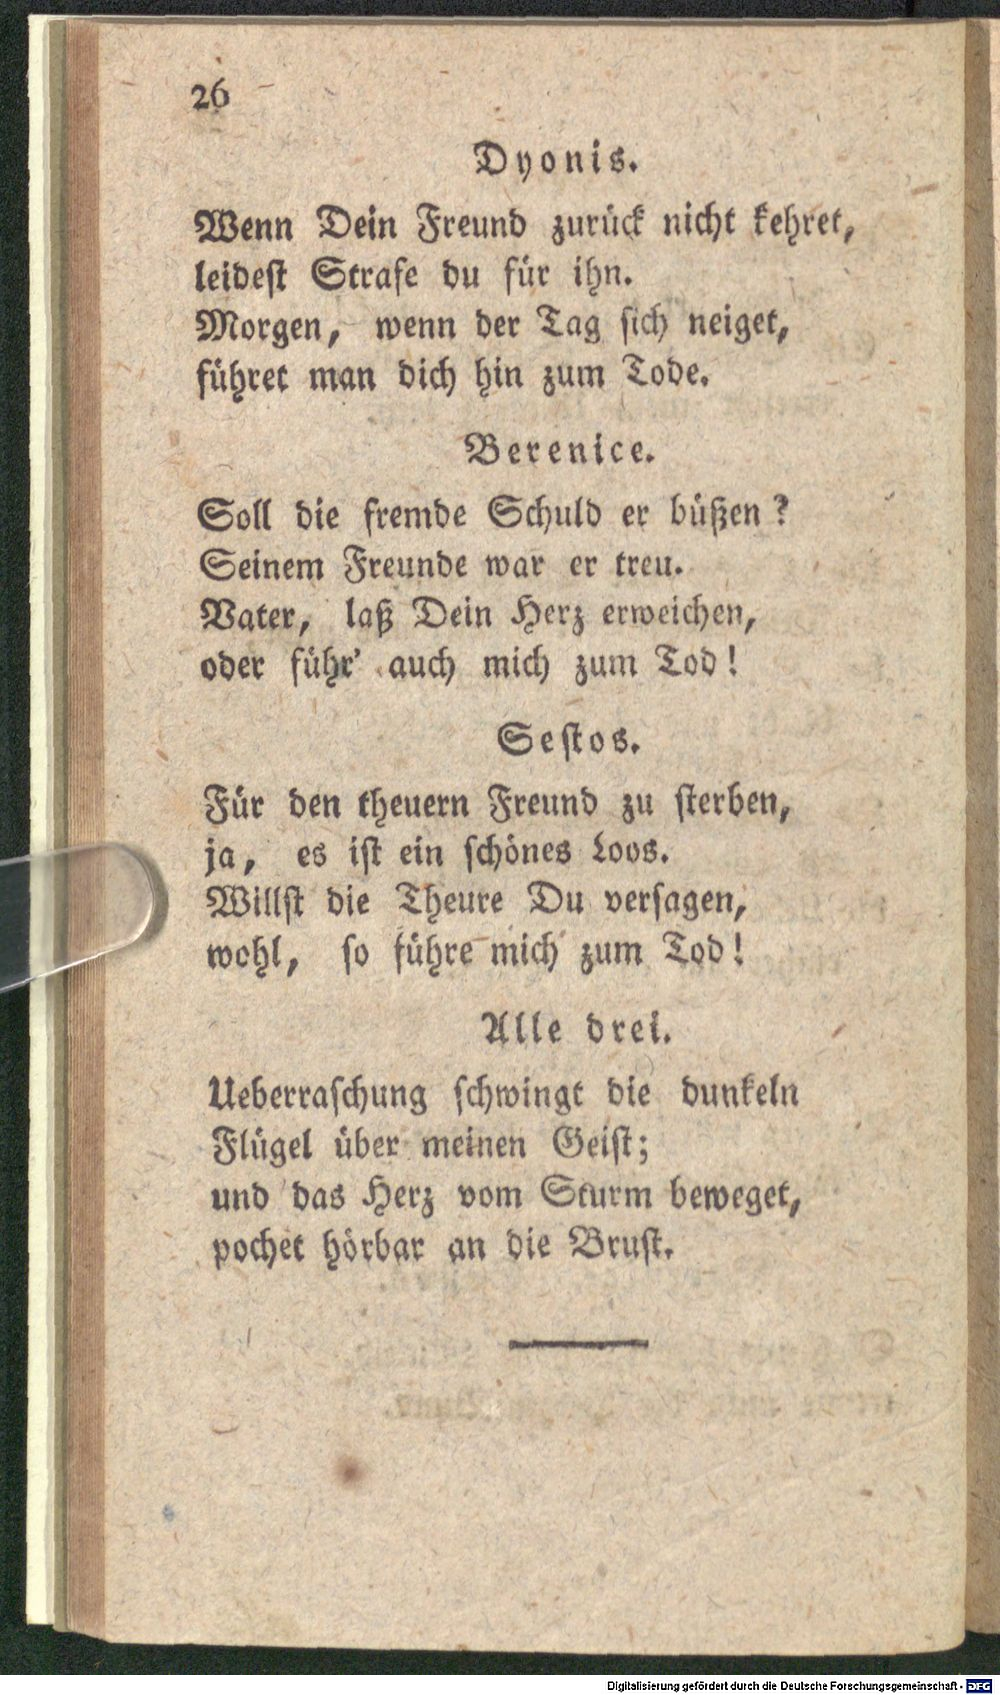 26
Dyonis.
Wenn Dein Freund zurück nicht kehret,
leidest Strafe du für ihn.
Morgen, wenn der Tag sich neiget,
führet man dich hin zum Tode.
Berenice.
Soll die fremde Schuld er büßen?
Seinem Freunde war er treu.
Vater, laß Dein Herz erweichen,
oder führ' auch mich zum Tod!
Sestos.
Für den theuern Freund zu sterben,
ja, es ist ein schönes Loos.
Willst die Theure Du versagen,
wohl, so führe mich zum Tod!
Alle drei.
Ueberraschung schwingt die dunkeln
Flügel über meinen Geist;
und das Herz vom Sturm beweget,
pochet hörbar an die Brust.
Digitalisierung gefördert durch die Deutsche Forschungsgemeinschaft - DFG